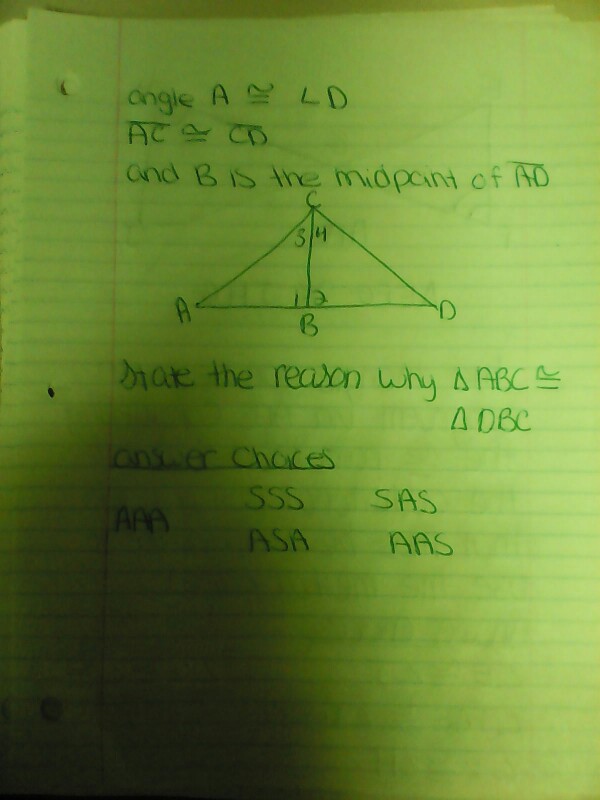 angle A ≅ ∠D
AC ≅ CD
and B is the midpoint of AD
C
3 4
A 1 2 D
B
State the reason why △ABC ≅
△DBC
answer choices
SSS SAS
AAA
ASA AAS